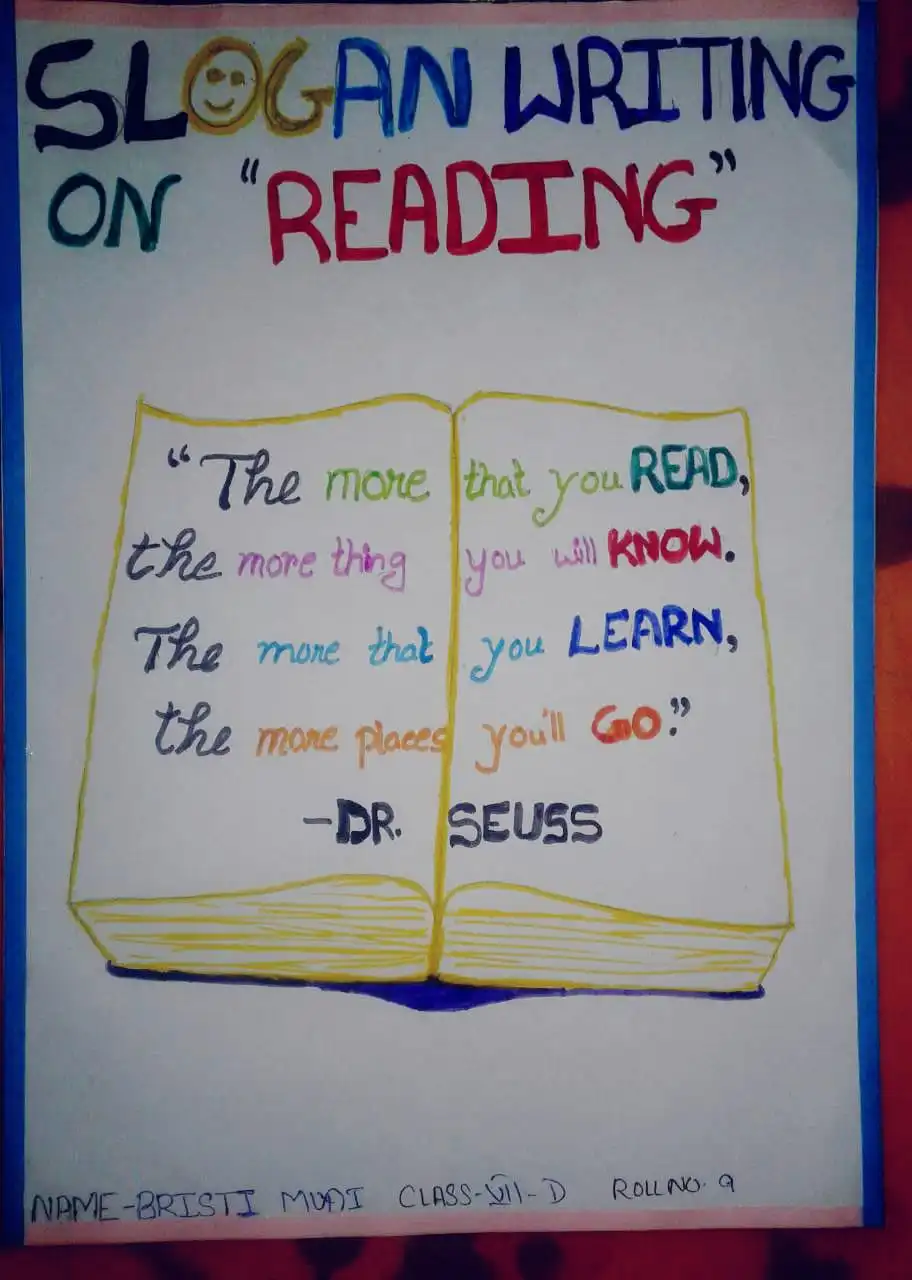 SLOGAN WRITING
ON "READING"
"The more that you READ,
the more thing you will KNOW.
The more that you LEARN,
the more places you'll GO."
-DR. SEUSS
NAME-BRISTI CLASS-VII-D ROLL NO. 9